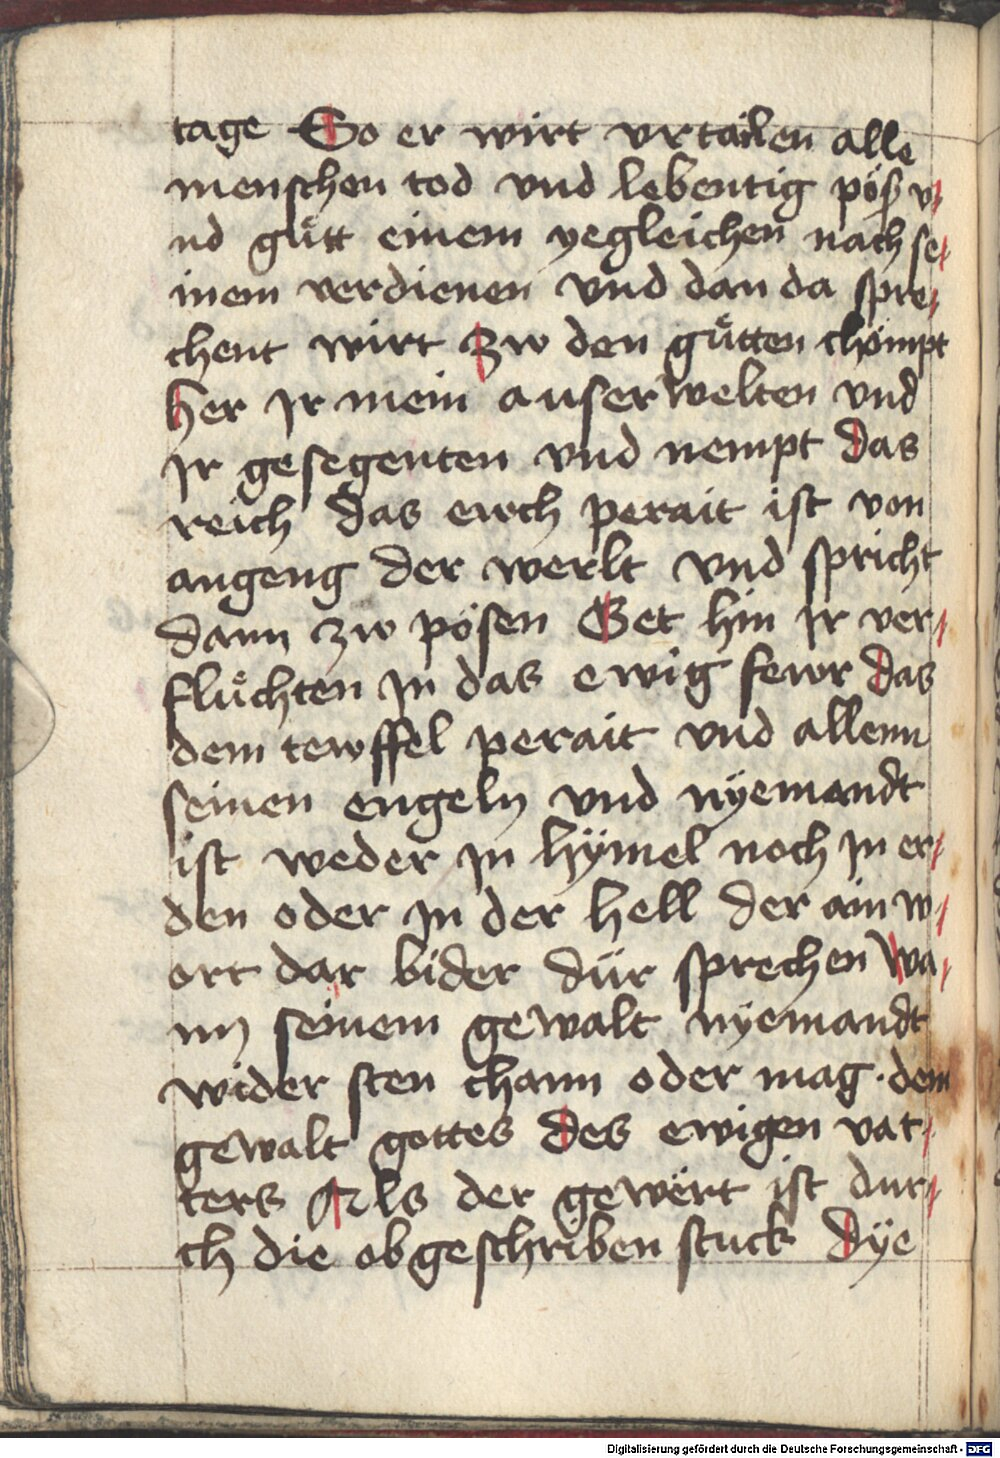 tage So er wirt vrtailen alle
menschen tod vnd lebentig pöß v-
nd guͤtt einem yegleichen nach se-
inem verdienen vnd dan da spre-
chent wirt zw den guͤtten chömpt
her ir mein auserwelten vnd
ir gesegenten vnd nempt das
reich das ewch perait ist von
angeng der werlt vnd spricht
dann zw pösen Get hin ir ver-
fluͤchten in das ewig fewr das
dem tewffel perait vnd allenn
seinen engeln vnd nyemandt
ist weder in hymel noch in er-
den oder in der hell der ain w-
ort dar bider dür sprechen wa-
nn seinem gewalt nyemandt
wider sten chann oder mag · dem
gewalt gottes des ewigen vat-
ters Als der gewert ist dur-
ch die obgeschriben stuck dye
Digitalisierung gefördert durch die Deutsche Forschungsgemeinschaft - DFG